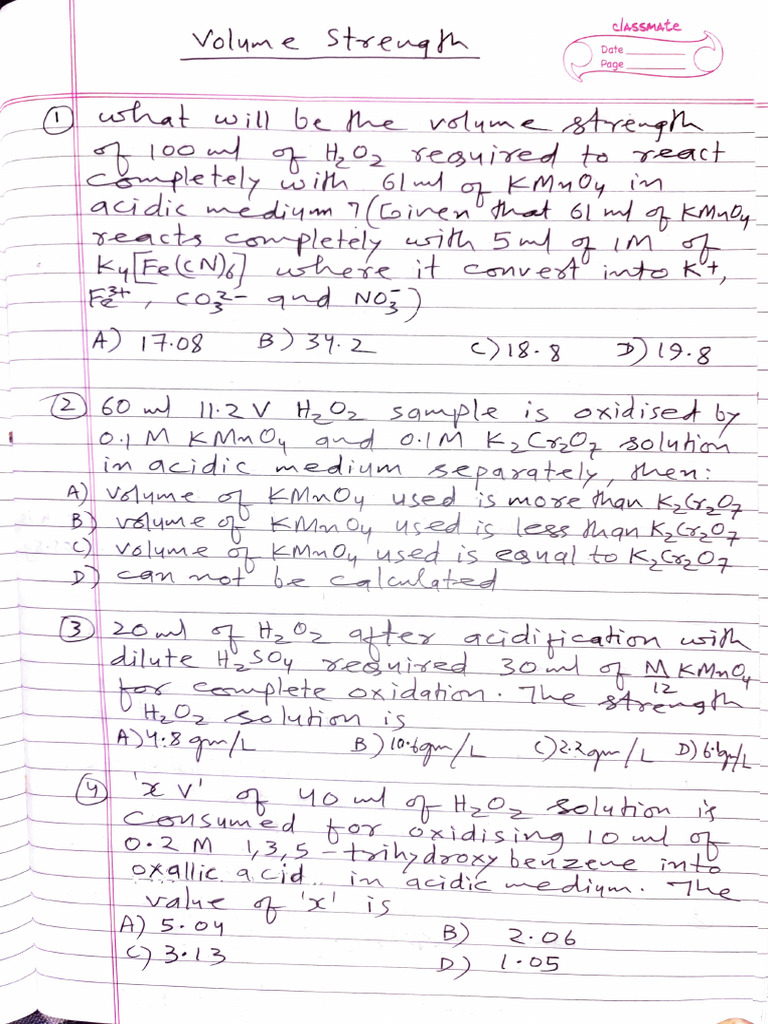 Volume Strength
classmate
Date
Page
① What will be the volume strength
of 100 ml of H₂O₂ required to react
completely with 61 ml of KMnO₄ in
acidic medium ? (Given that 61 ml of KMnO₄
reacts completely with 5 ml of 1M of
K₄[Fe(CN)₆] where it convert into K⁺,
Fe³⁺, CO₃²⁻ and NO₃⁻)
A) 17.08 B) 34.2 C) 18.8 D) 19.8
② 60 ml 11.2 V H₂O₂ sample is oxidised by
0.1 M KMnO₄ and 0.1 M K₂Cr₂O₇ solution
in acidic medium separately, then:
A) volume of KMnO₄ used is more than K₂Cr₂O₇
B) volume of KMnO₄ used is less than K₂Cr₂O₇
C) volume of KMnO₄ used is equal to K₂Cr₂O₇
D) can not be calculated
③ 20 ml of H₂O₂ after acidification with
dilute H₂SO₄ required 30 ml of M/12 KMnO₄
for complete oxidation. The strength
H₂O₂ solution is
A) 4.8 gm/L B) 10.6 gm/L C) 2.2 gm/L D) 6.1 gm/L
④ 'x V' of 40 ml of H₂O₂ solution is
consumed for oxidising 10 ml of
0.2 M 1,3,5-trihydroxy benzene into
oxallic acid in acidic medium. The
value of 'x' is
A) 5.04 B) 2.06
C) 3.13 D) 1.05